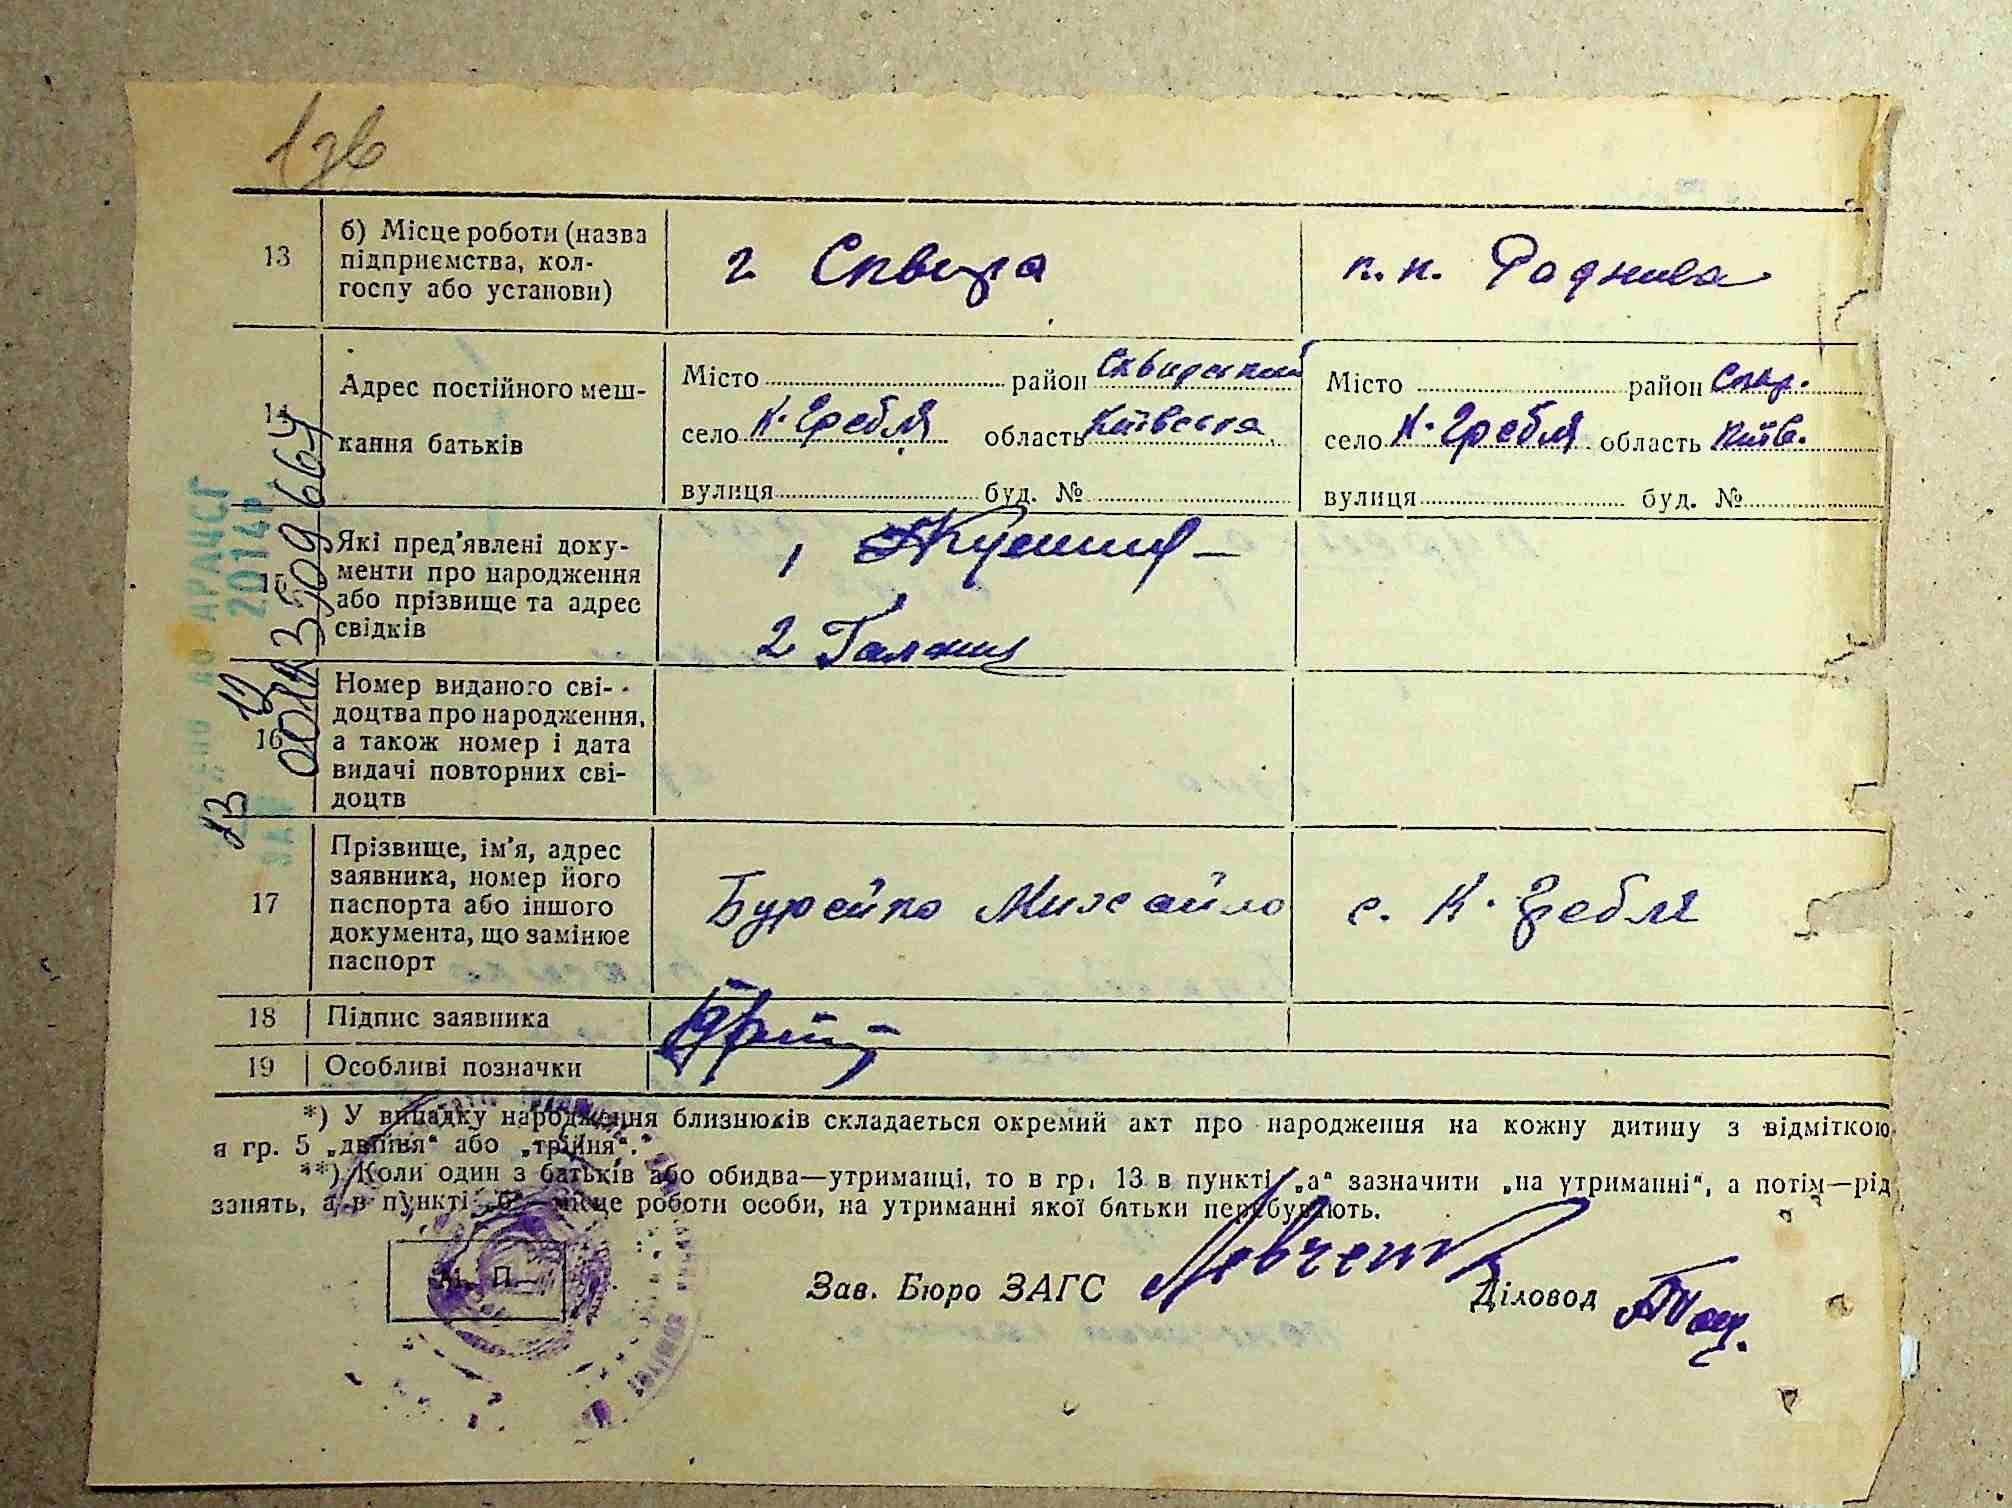 13
б) Місце роботи (назва
підприємства, кол-
госпу або установи)
г Сквира
к.к.
14
Адрес постійного меш-
кання батьків
Місто район Сквирський
село К. Гребля область Київська
вулиця буд. №
Місто район Сквир.
село К. Гребля область Київ.
вулиця буд. №
15
Які пред'явлені доку-
менти про народження
або прізвище та адрес
свідків
1
2
16
Номер виданого сві-
доцтва про народження,
а також номер і дата
видачі повторних сві-
доцтв
17
Прізвище, ім'я, адрес
заявника, номер його
паспорта або іншого
документа, що замінює
паспорт
Бурейко Михайло
с. К. Гребля
18
Підпис заявника
19
Особливі позначки
*) У випадку народження близнюків складається окремий акт про народження на кожну дитину з відміткою
в гр. 5 „двійня" або „трійня".
**) Коли один з батьків або обидва—утриманці, то в гр. 13 в пункті „а" зазначити „на утриманні", а потім—рід
занять, а в пункті „б" місце роботи особи, на утриманні якої батьки перебувають.
М. П.
Зав. Бюро ЗАГС
Діловод
ДРАЦСГ
2014р
00113509664
13 12